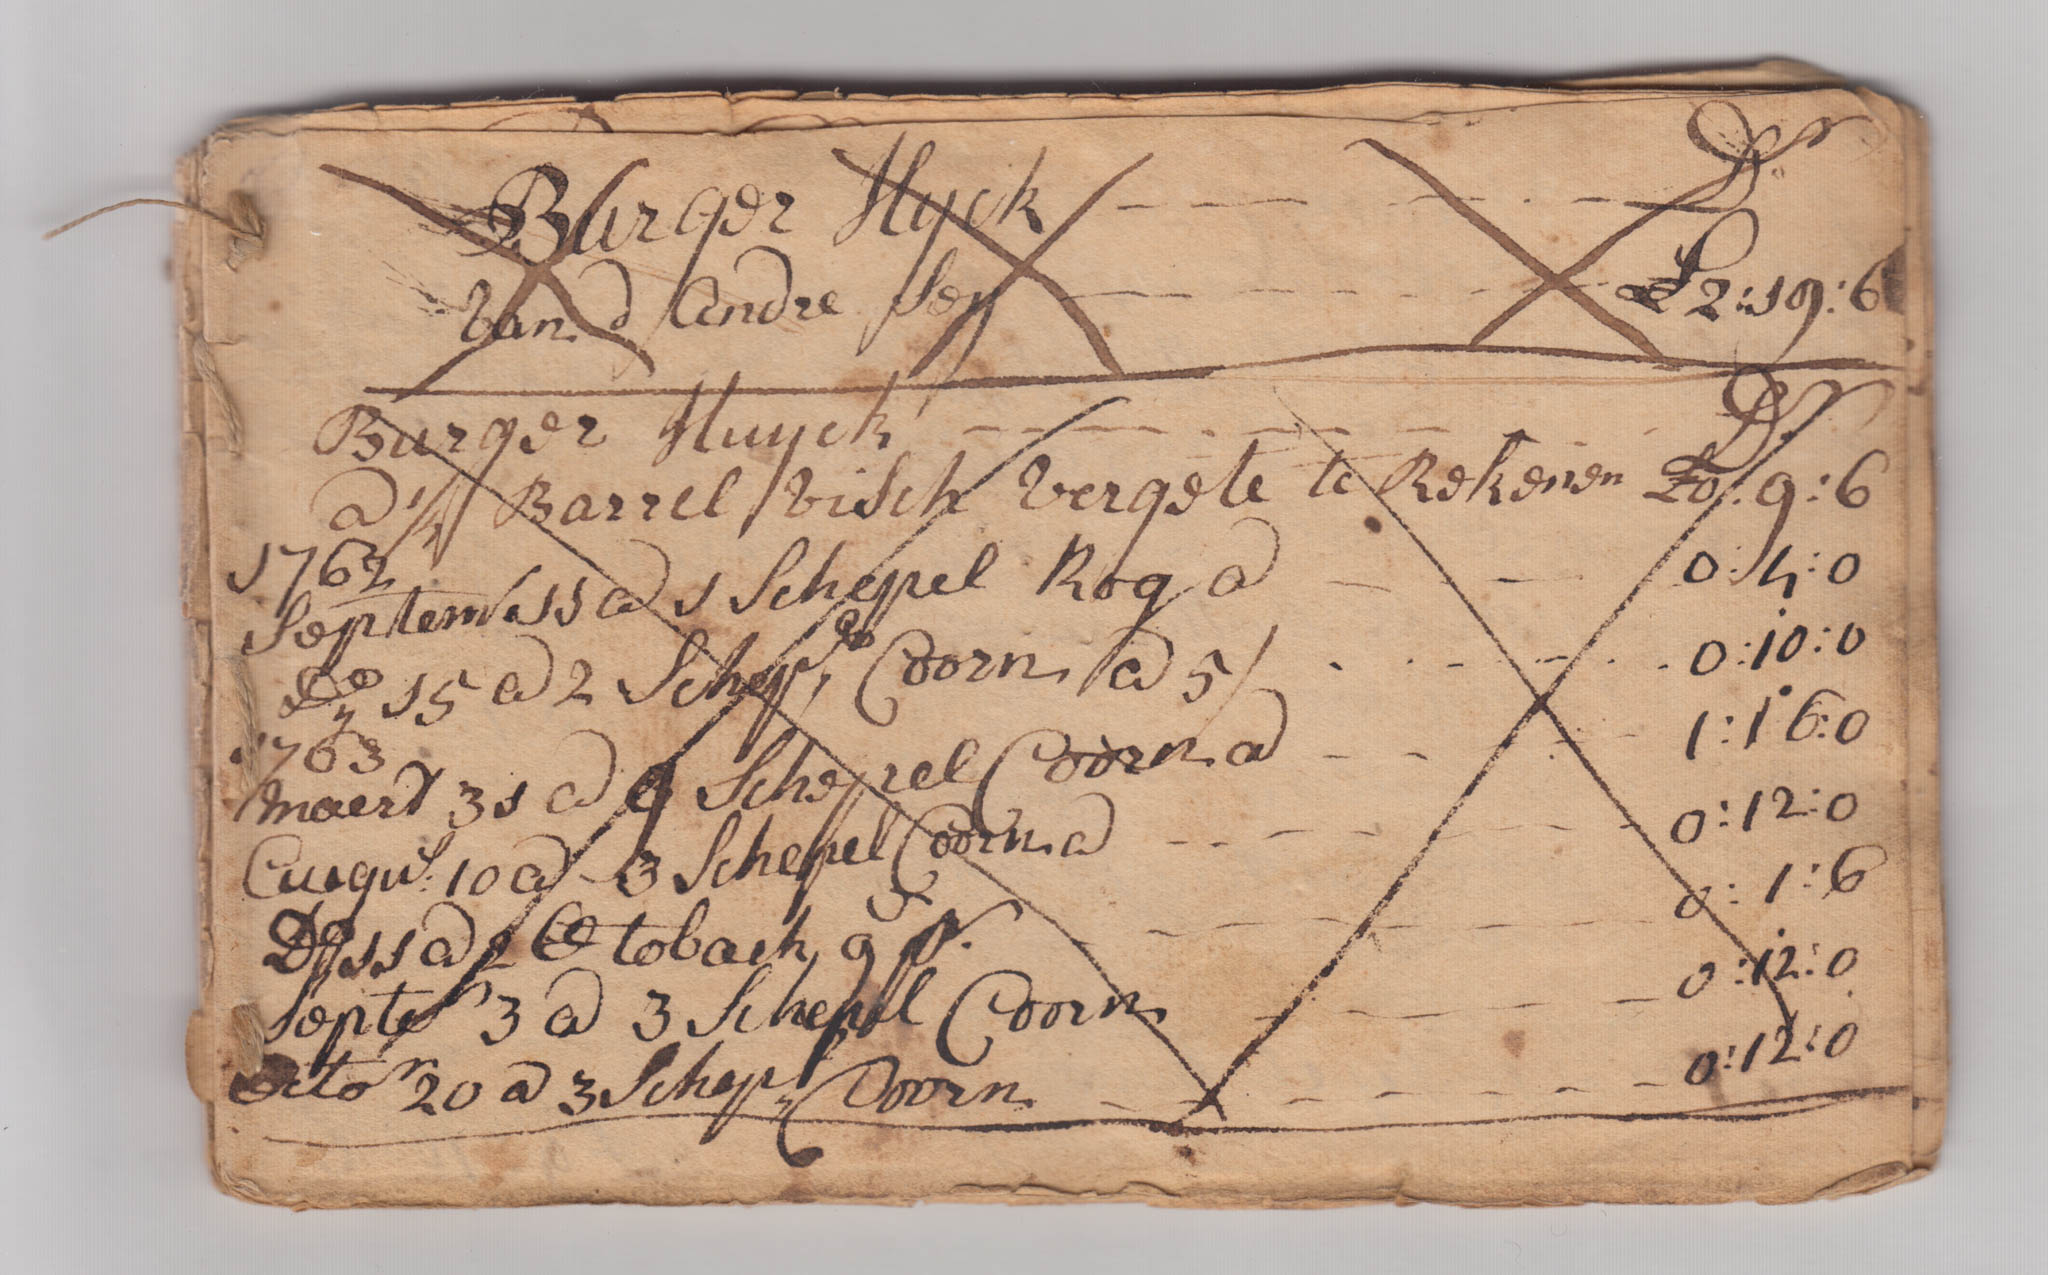 Burger Hyck - - - - - Dr
Van d andre sey - - - - £2:19:6
Burger Huyck - - - - - Dr
a 1/4 Barrel visch vergete te Rekenen £0:9:6
1762
Septemr 11 a 1 Schepel Rog a - - - 0:4:0
Do 15 a 2 Schepl Coorn a 5/ - - - 0:10:0
1763
maert 31 a 9 Schepel Coorn a - - - 1:16:0
Augus: 10 a 3 Schepel Coorn a - - - 0:12:0
D 11 a 2 toback 9 - - - 0:1:6
Septr 3 a 3 Schepel Coorn - - - 0:12:0
Octor 20 a 3 Schep Coorn - - - 0:12:0